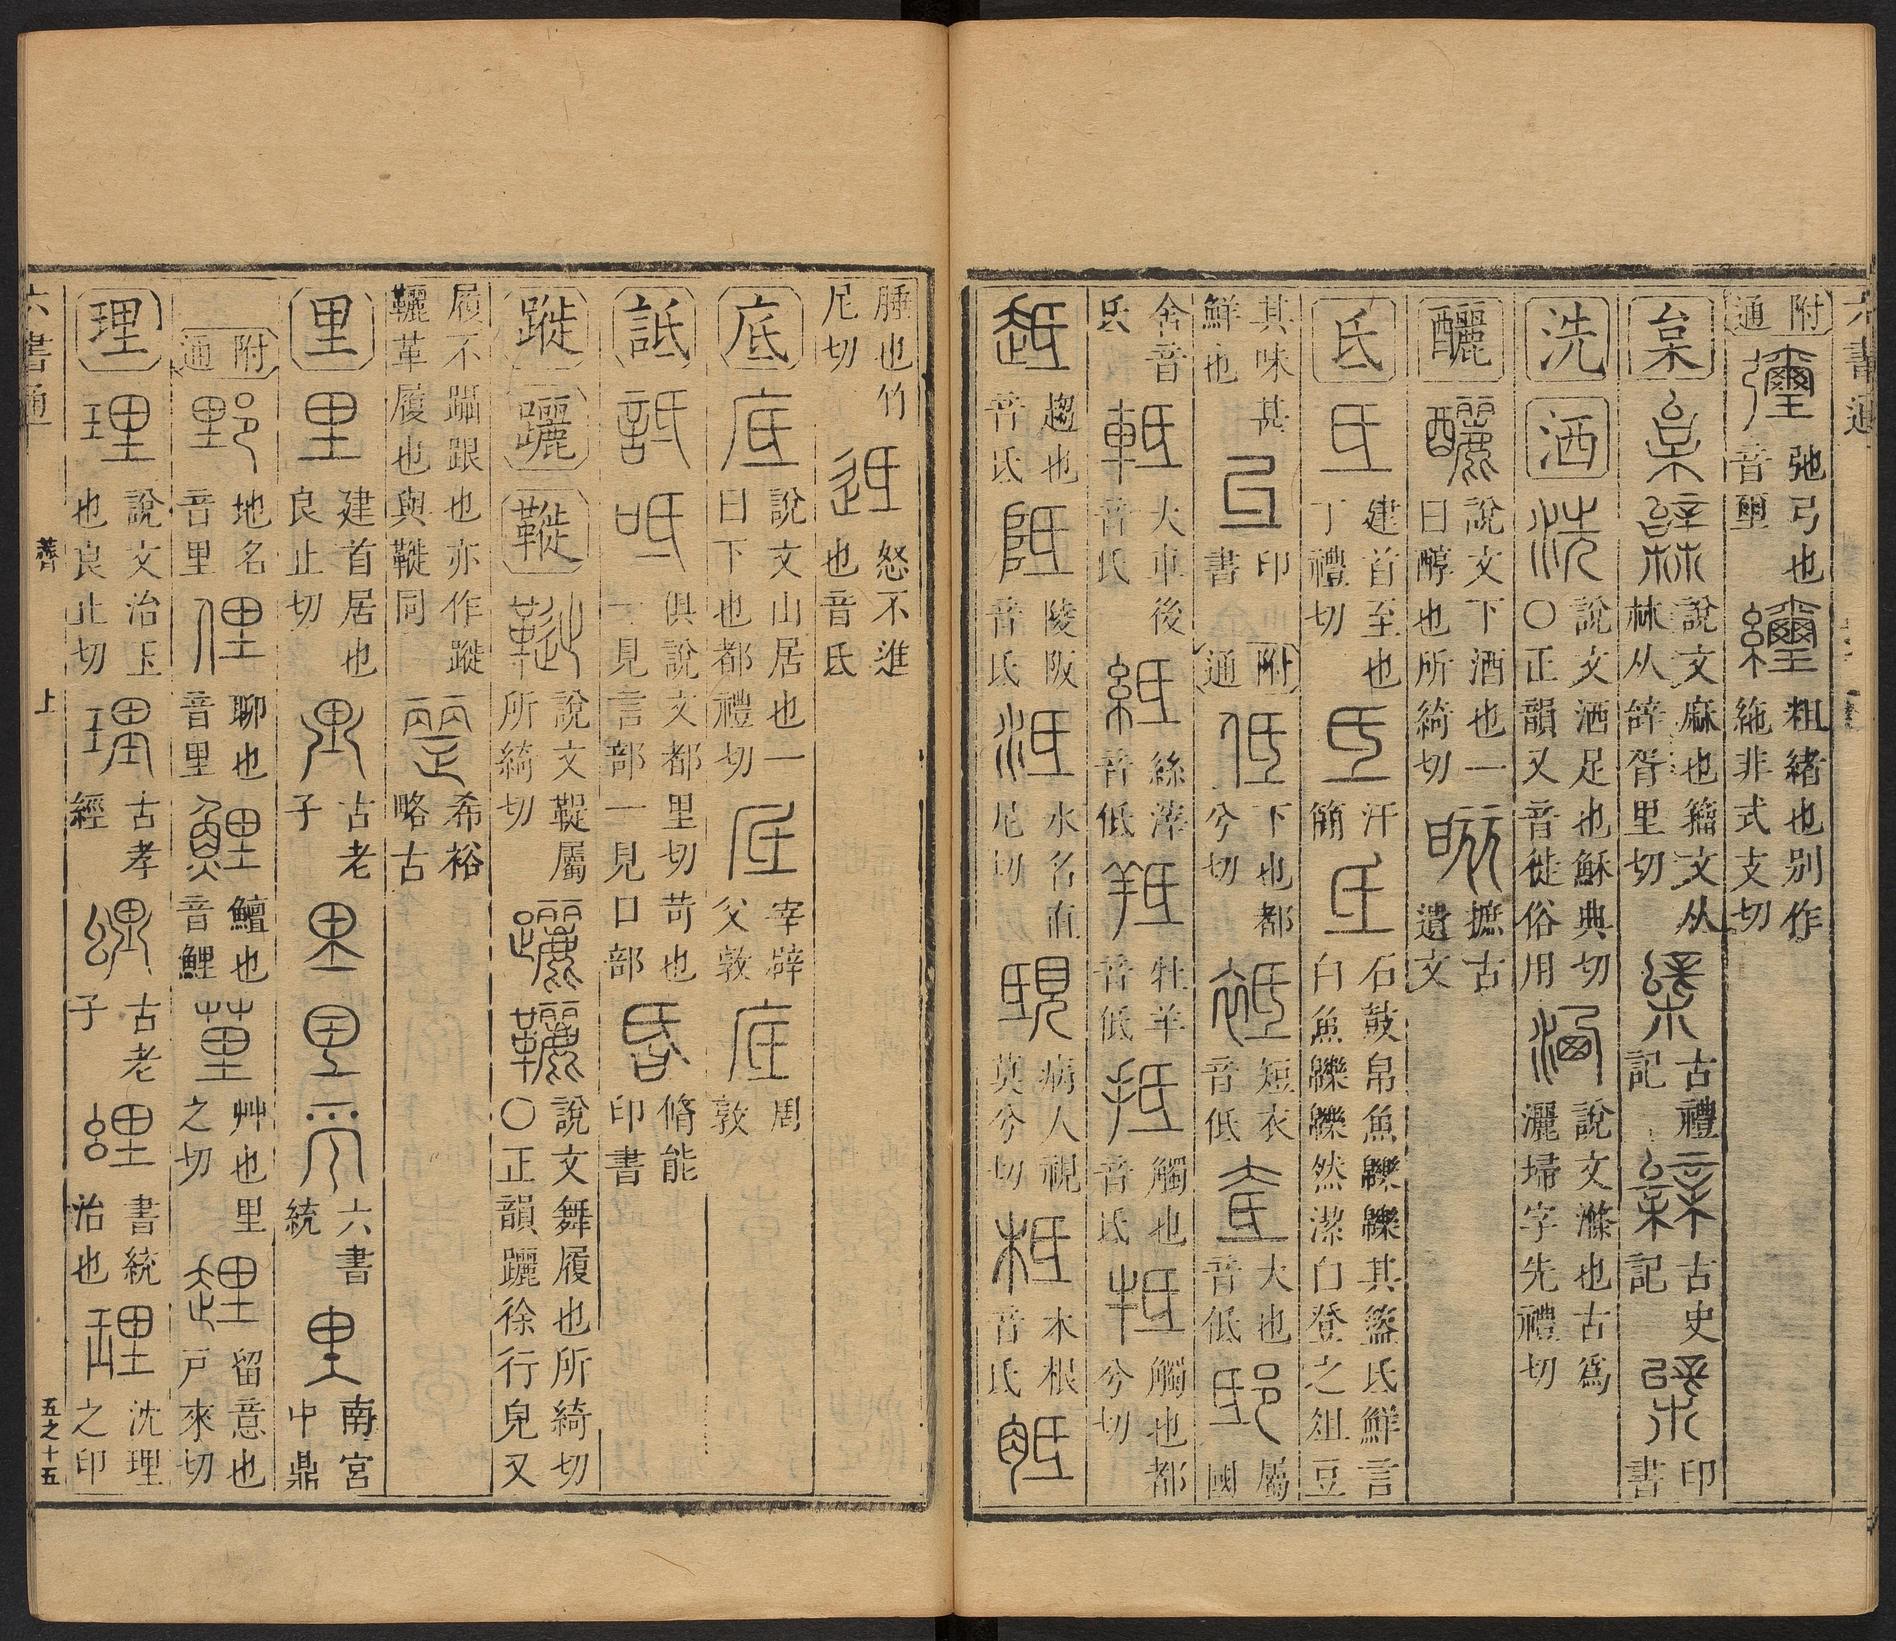 六書通
附通 彌 弛弓也音壐 纚 粗緒也別作絁非式支切
枲 說文麻也籀文从𣏟从辝胥里切 古禮記 古史記 印書
洗 洒 說文洒足也穌典切〇正韻又音徙俗用 說文滌也古為灑埽字先禮切
釃 說文下酒也一曰醇也所綺切 摭古遺文
氐 建首至也丁禮切 汗簡 石鼓帛魚鱳鱳其簋氐鮮言白魚鱳鱳然潔白登之俎豆
其味甚鮮也 印書 附通 低 下也都兮切 袛 短衣音低 大也音低 邸 屬國
舍音氐 軧 大車後音氐 紙 絲滓音低 羝 牡羊音低 抵 觸也音氐 牴 觸也都兮切
趆 趨也音氐 阺 陵阪音氐 泜 水名直尼切 覕 病人視莫兮切 柢 木根音氐 胝
腄也竹尼切 怒不進也音氐
底 說文山居也一曰下也都禮切 宰辟父敦 周敦
詆 呧 俱說文都里切苛也一見言部一見口部 脩能印書
蹝 躧 鞾 說文鞮屬所綺切 說文舞履也所綺切〇正韻躧徐行皃又
履不躡跟也亦作蹝韆革履也與鞾同 希裕略古
里 建首居也良止切 古老子 六書統 南宮中鼎
附通 野 地名音里 俚 聊也音里 鯉 鱣也音鯉 艸也里之切 留意也戸來切
理 說文治玉也良止切 古孝經 古老子 書統治也 沈理之印
六書通 薺 上 五之十五